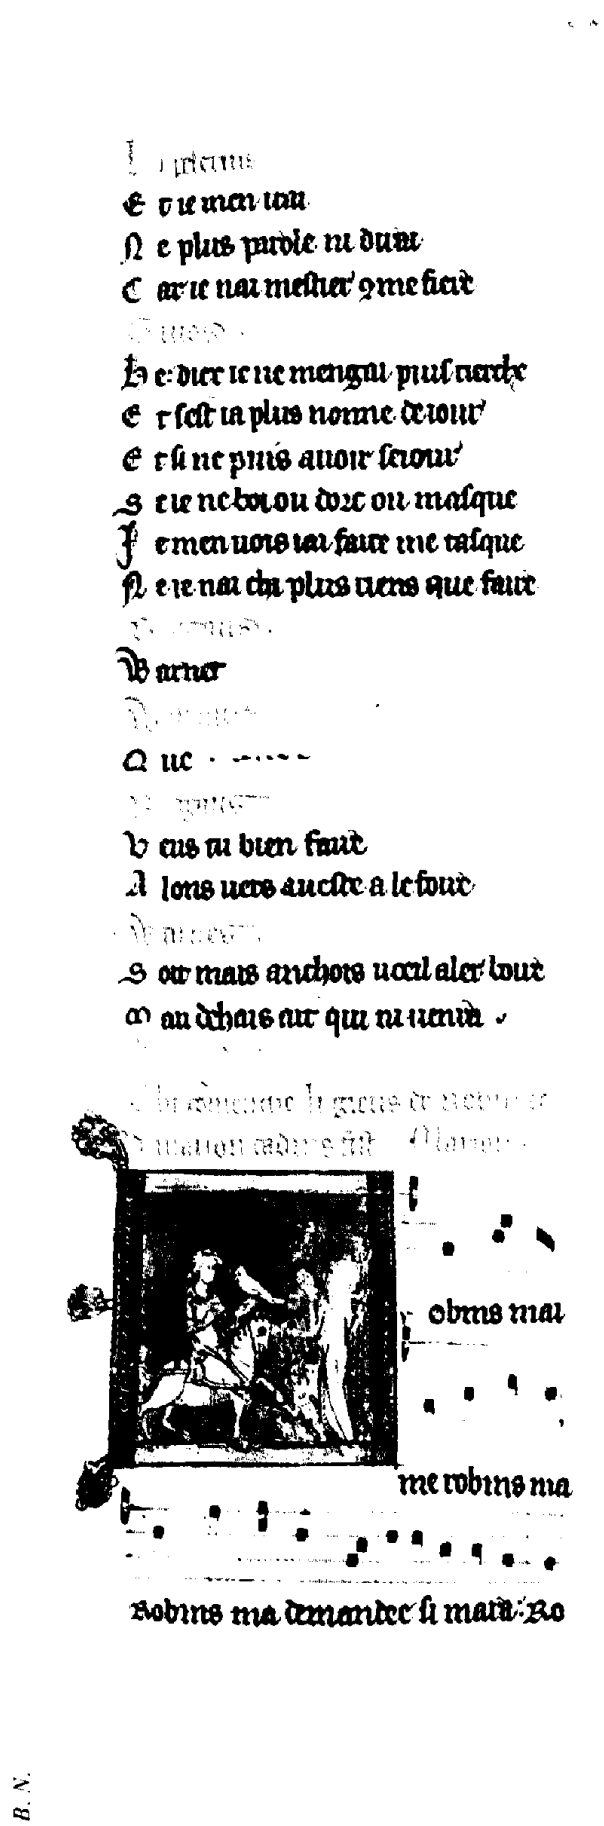 Et ie men uoi
Ne plus parole ni dirai
Car ie nai mestier 9me fiere
He dier ie ne mengai puis
Et sest ia plus nonne de iour
Et si ne puis auoir seiour
Se ie ne boi ou dorc ou masque
Je men uois iai faire me tasque
Ne ie nai chi plus riens que faire
Warnet
Que
Veus tu bien faire
Alons uers aueste a le foire
Soit mais anchois uoeil aler boire
Mau dehais ait qui ni uenra
Chi 9menche li gieus de Robin et
de marion cadans fist Marions
Robins mai
me robins ma
Robins ma demandee si mara. Ro
B. N.